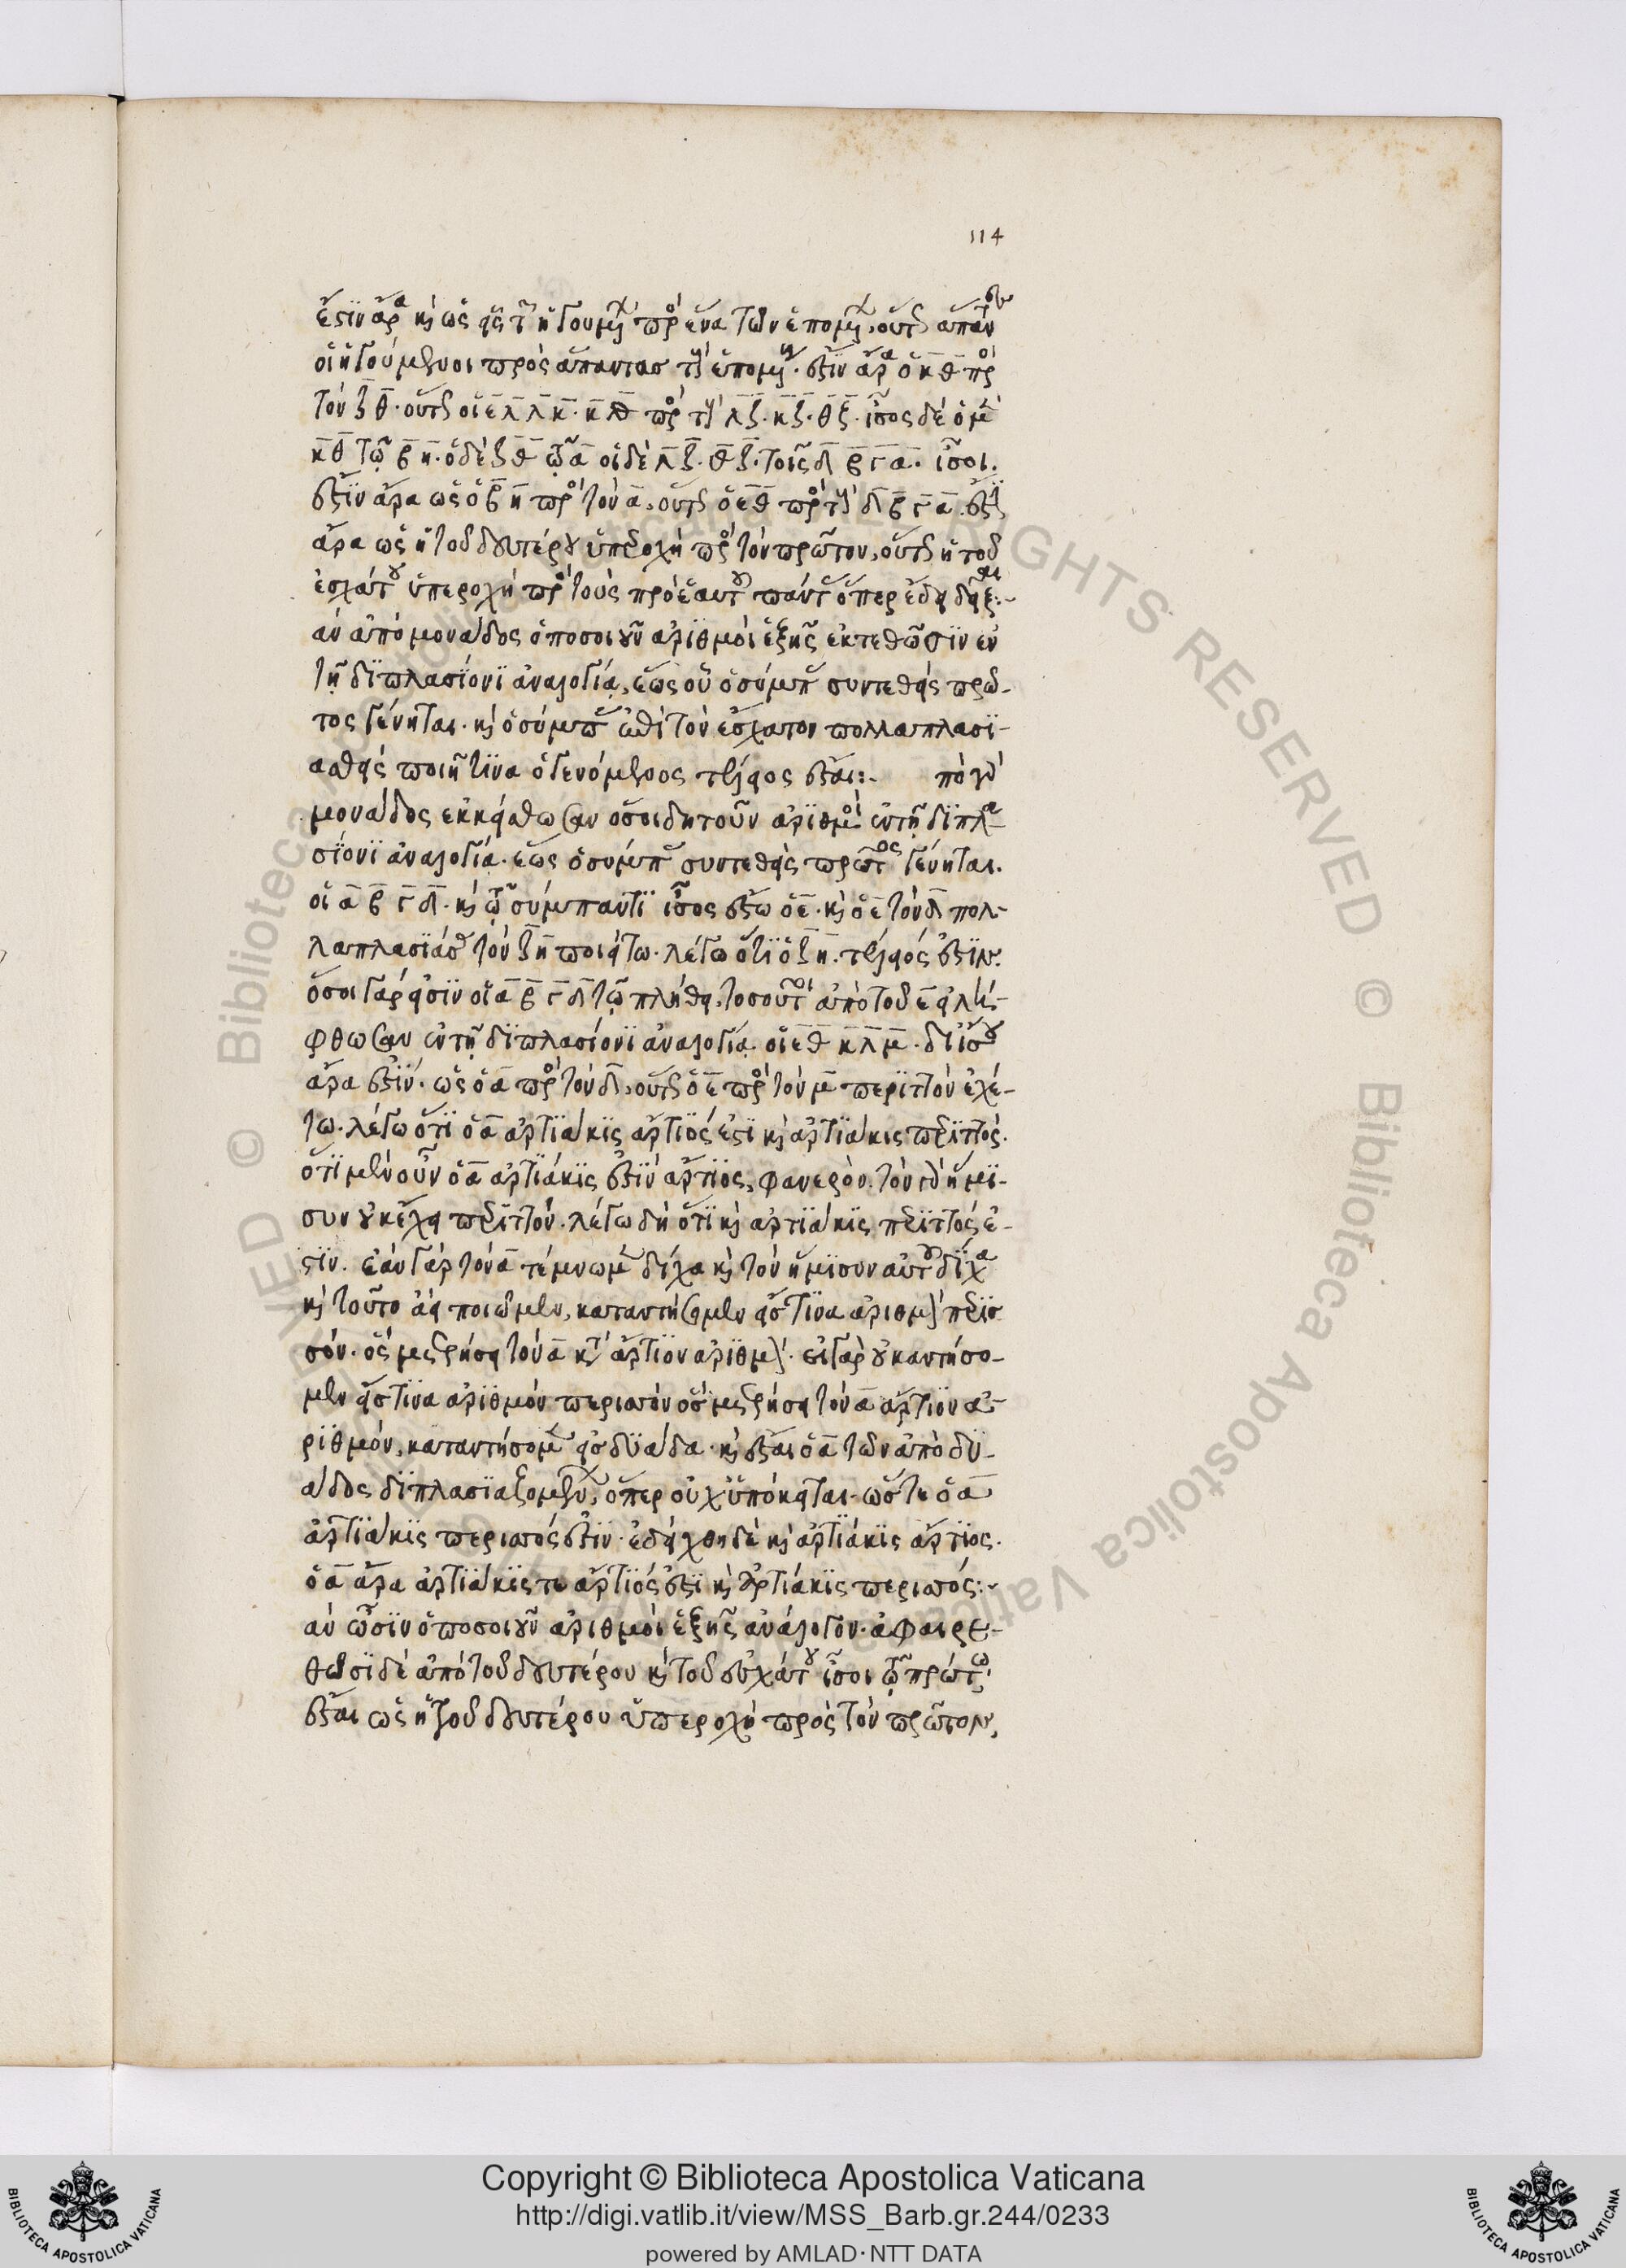 114
ἔστιν ἄρα καὶ ὡς εἷς τῶν ἡγουμένων πρὸς ἕνα τῶν ἑπομένων, οὕτως ἅπαντες
οἱ ἡγούμενοι πρὸς ἅπαντας τοὺς ἑπομένους. ἔστιν ἄρα ὡς ὁ κθ πρὸς
τὸν ζθ. οὕτως οἱ ελ λκ. κθ πρὸς τοὺς λζ. κζ. θξ. ἴσος δὲ ὁ μὲν
κθ τῷ βη. ὁ δὲ ζθ τῷ α οἱ δὲ λζ. θζ. τοῖς δ β γ α. ἴσοι.
ἔστιν ἄρα ὡς ὁ βη πρὸς τὸν α, οὕτως ὁ εθ πρὸς τοὺς δ β γ α. ἔστιν
ἄρα ὡς ἡ τοῦ δευτέρου ὑπεροχὴ πρὸς τὸν πρῶτον, οὕτως ἡ τοῦ
ἐσχάτου ὑπεροχὴ πρὸς τοὺς πρὸ ἑαυτοῦ πάντας ὅπερ ἔδει δεῖξαι:-
ἀν ἀπὸ μονάδος ὁποσοιοῦν ἀριθμοὶ ἑξῆς ἐκτεθῶσιν ἐν
τῇ διπλασίονι ἀναλογίᾳ, ἕως οὗ ὁ σύμπας συντεθεὶς πρῶ-
τος γένηται. καὶ ὁ σύμπας ἐπὶ τὸν ἔσχατον πολλαπλασι-
ασθεὶς ποιῇ τινα ὁ γενόμενος τέλειος ἔσται:- πὸ γὰρ
μονάδος ἐκκείσθωσαν ὅσοι δητοῦν ἀριθμοὶ ἐν τῇ διπλα-
σίονι ἀναλογίᾳ. ἕως ὁ σύμπας συντεθεὶς πρῶτος γένηται.
οἱ α β γ δ. καὶ τῷ σύμπαντι ἴσος ἔστω ὁ ε. καὶ ὁ ε τὸν δ πολ-
λαπλασιάσας τὸν ζη ποιείτω. λέγω ὅτι ὁ ζη. τέλειός ἐστιν.
ὅσοι γάρ εἰσιν οἱ α β γ δ τῷ πλήθει, τοσοῦτοι ἀπὸ τοῦ ε εἰλή-
φθωσαν ἐν τῇ διπλασίονι ἀναλογίᾳ οἱ εθ κλ μ. δι ἴσου
ἄρα ἐστίν. ὡς ὁ α πρὸς τὸν δ, οὕτως ὁ ε πρὸς τὸν μ περιττὸν ἐχέ-
τω. λέγω ὅτι ὁ α ἀρτιάκις ἄρτιός ἐστι καὶ ἀρτιάκις περιττός.
ὅτι μὲν οὖν ὁ α ἀρτιάκις ἐστὶν ἄρτιος, φανερόν. τὸν γὰρ ἥμι-
συν οὐκ ἔχει περιττόν. λέγω δὴ ὅτι καὶ ἀρτιάκις περιττός ἐ-
στιν. ἐὰν γὰρ τὸν α τέμνωμεν δίχα καὶ τὸν ἥμισυν αὐτοῦ δίχα
καὶ τοῦτο ἀεὶ ποιῶμεν, καταντήσομεν εἴς τινα ἀριθμὸν περισ
σόν. ὃς μετρήσει τὸν α κατὰ ἄρτιον ἀριθμόν. εἰ γὰρ οὐ καντήσο-
μεν εἴς τινα ἀριθμὸν περισσὸν ὃς μετρήσει τὸν α ἄρτιον ἀ-
ριθμόν, καταντήσομεν εἰς δυάδα. καὶ ἔσται ὁ α τῶν ἀπὸ δυ-
άδος διπλασιαζομένων, ὅπερ οὐχ ὑπόκειται. ὥστε ὁ α
ἀρτιάκις περισσός ἐστιν. ἐδείχθη δὲ καὶ ἀρτιάκις ἄρτιος.
ὁ α ἄρα ἀρτιάκις τε ἄρτιός ἐστι καὶ ἀρτιάκις περισσός:-
ἀν ὦσιν ὁποσοιοῦν ἀριθμοὶ ἑξῆς ἀνάλογον. ἀφαιρε-
θῶσι δὲ ἀπὸ τοῦ δευτέρου καὶ τοῦ ἐσχάτου ἴσοι τῷ πρώτῳ.
ἔσται ὡς ἡ τοῦ δευτέρου ὑπεροχὴ πρὸς τὸν πρῶτον,
Copyright © Biblioteca Apostolica Vaticana
http://digi.vatlib.it/view/MSS_Barb.gr.244/0233
powered by AMLAD·NTT DATA